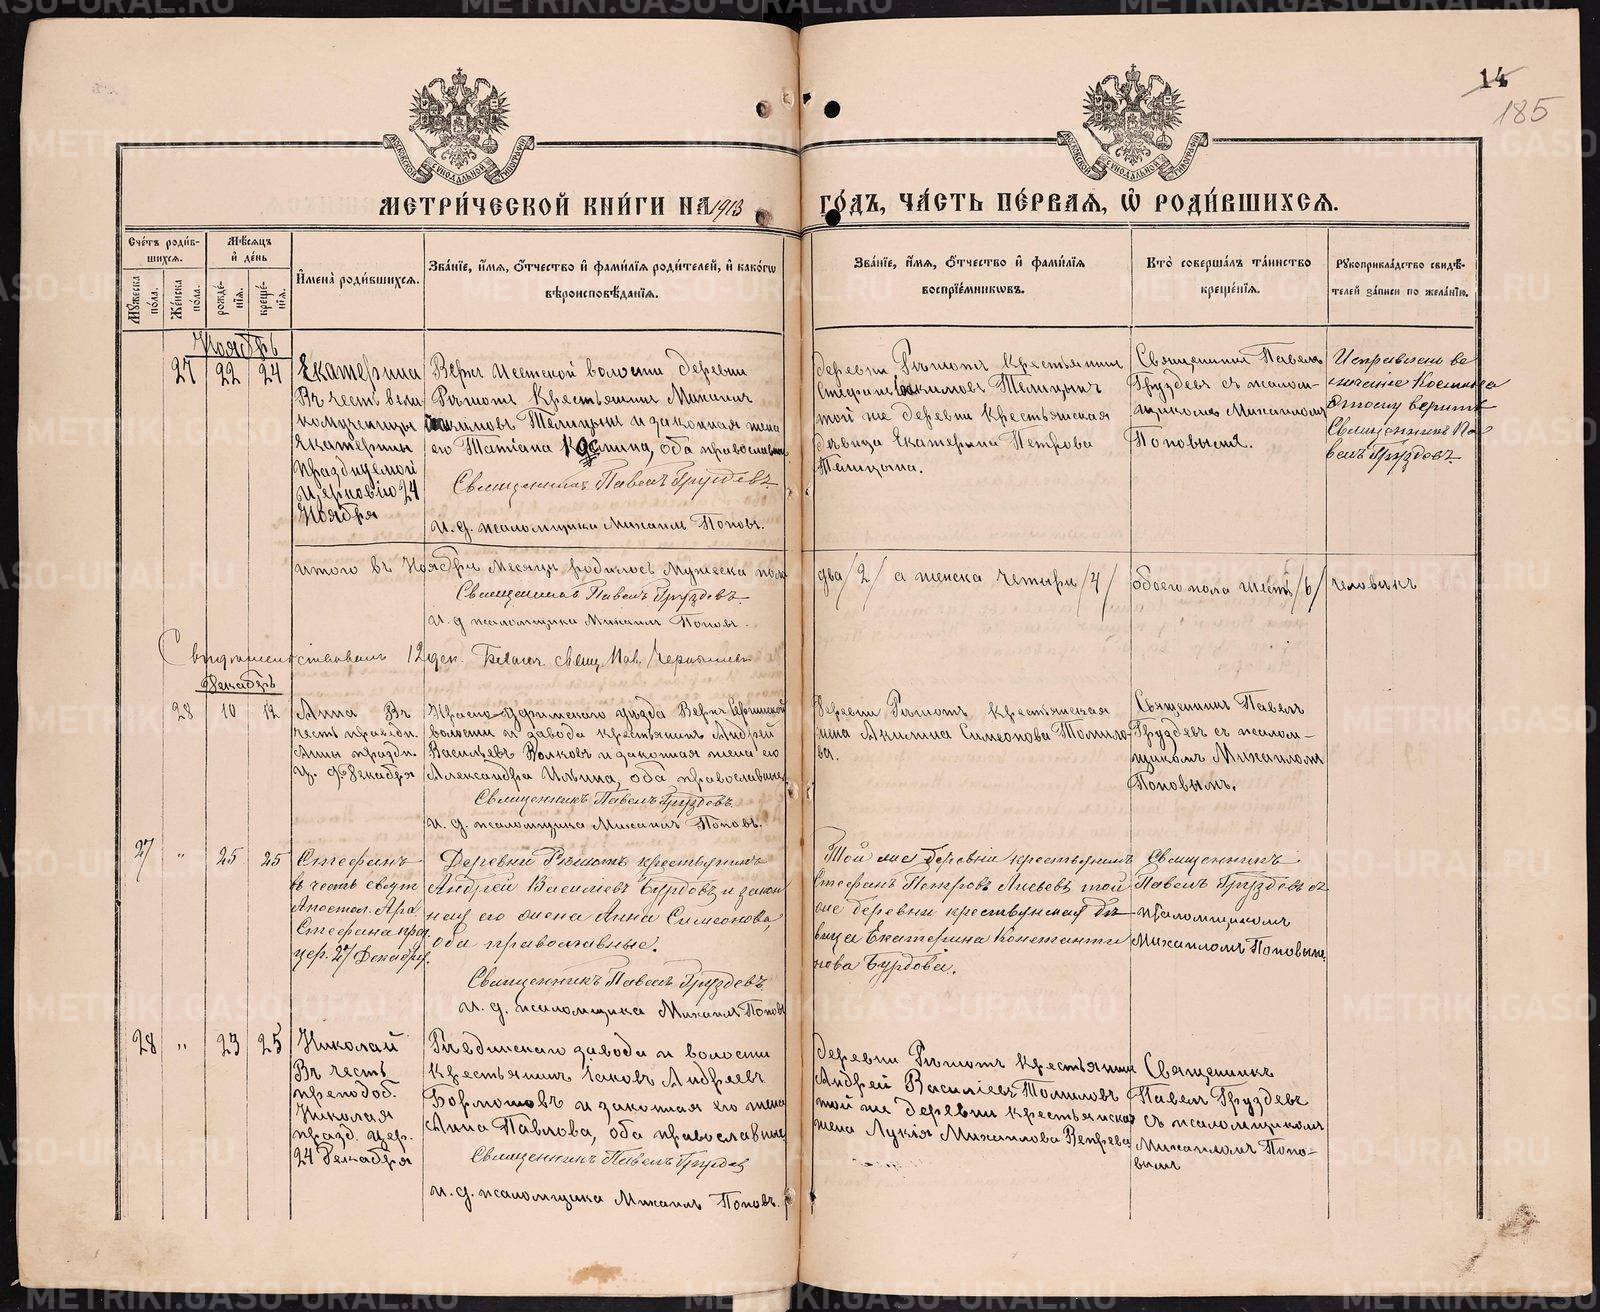 14
185
МОСКОВСКОЙ СѴНОДАЛЬНОЙ ТИПОГРАФІИ
МОСКОВСКОЙ СѴНОДАЛЬНОЙ ТИПОГРАФІИ
МЕТРИ́ЧЕСКОЙ КНИ́ГИ НА 1913 ГО́ДЪ, ЧА́СТЬ ПЕ́РВАѦ, Ѡ҆ РОДИ́ВШИХСѦ.
Сче́тъ роди́в-
шихсѧ.
Мѣ́сѧцъ
и҆ де́нь
Мꙋ́жеска
по́ла.
Же́нска
по́ла.
рожде́-
нїѧ.
креще́-
нїѧ.
И҆мена̀ роди́вшихсѧ.
Зва́нїе, и҆́мѧ, ѻ҆́тчество и҆ фами́лїѧ роди́телей, и҆ како́гѡ
вѣроисповѣ́данїѧ.
Зва́нїе, и҆́мѧ, ѻ҆́тчество и҆ фами́лїѧ
воспрїе́мникѡвъ.
Кто̀ соверша́лъ та́инство
креще́нїѧ.
Рꙋкоприкла́дство свидѣ́-
телей за́писи по жела́нїю.
Ноябрь
27 22 24
Екатерина
Въ честь вели-
комученицы
Екатерины
празднуемой
церковію 24
Ноября
Верхъ Исетской волости деревни
Рѣшотъ Крестьянинъ Михаилъ
Телицынъ и законная жена
его Татіана, оба православные
Священникъ Павелъ Груздевъ
и. д. псаломщика Михаилъ Поповъ.
деревни Рѣшотъ Крестьянинъ
Стефанъ Іакимовъ Телицынъ
той же деревни Крестьянская
дѣвица Екатерина Петрова
Телицына.
Священникъ Павелъ
Груздевъ съ псалом-
щикомъ Михаиломъ
Поповымъ.
Исправлено
Священникъ Па-
велъ Груздевъ
итого въ Ноябрѣ мѣсяцѣ родилось Мужеска пола два /2/ а женска четыри /4/ обоего пола шесть /6/ человѣкъ
Священникъ Павелъ Груздевъ.
и. д псаломщика Михаилъ Поповъ.
Свидѣтельствовалъ 12 дек. свящ.
Декабрь
28 10 12
Анна Въ
честь правѣдн.
Анны праздн.
ц. 9 Декабря
Красно-Уфимскаго уѣзда Верхъ Сергинской
волости и завода крестьянинъ Андрей
Васильевъ Волковъ и законная жена его
Александра Ильина, оба православные
Священникъ Павелъ Груздевъ.
и. д. псаломщика Михаилъ Поповъ.
Деревни Рѣшотъ Крестьянская
жена Анисина Симеонова Томило-
ва.
Священникъ Павелъ
Груздевъ съ псалом-
щикомъ Михаиломъ
Поповымъ.
27 " 25 25
Стефанъ
въ честь свят.
Апостол. Арх.
Стефана праз.
цер. 27 Декабря.
Деревни Рѣшотъ крестьянинъ
Андрей Василіевъ Бурдовъ и закон
ная его жена Анна Симеонова,
оба православные.
Священникъ Павелъ Груздевъ
и. д. псаломщика Михаилъ Поповъ
Той же деревни крестьянинъ
Стефанъ Петровъ той
же деревни крестьянская дѣ-
вица Екатерина Константи
нова Бурдова.
Священникъ
Павелъ Груздевъ съ
псаломщикомъ
Михаиломъ Поповымъ.
28 " 23 25
Николай
Въ честь
преподоб.
Николая
празд. цер.
24 Декабря
Рѣвдинскаго завода и волости
Крестьянинъ Іаковъ Андреевъ
Бормотовъ и законная его жена
Анна Павлова, оба православные
Священникъ Павелъ Груздев
и. д. псаломщика Михаилъ Поповъ.
Деревни Рѣшотъ Крестьянинъ
Андрей Василіевъ Томиловъ
той же деревни крестьянская
жена Лукія Михаилова Вепрева
Священникъ
Павелъ Груздевъ
съ псаломщикомъ
Михаиломъ Попо-
вымъ
METRIKI.GASO-URAL.RU